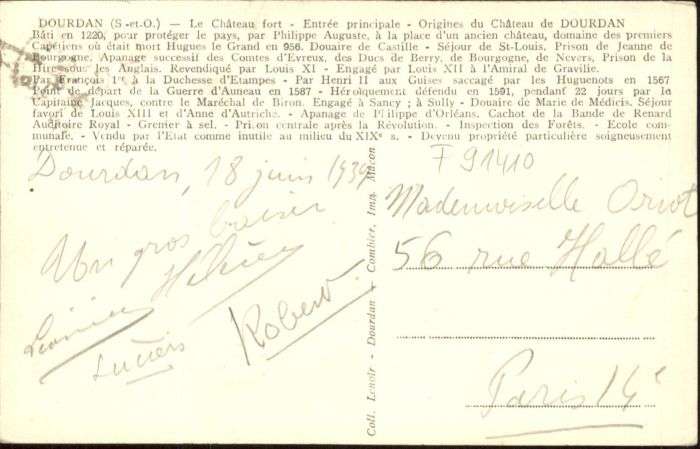 DOURDAN (S-et-O.) — Le Château fort - Entrée principale - Origines du Château de DOURDAN
Bâti en 1220, pour protéger le pays, par Philippe Auguste, à la place d'un ancien château, domaine des premiers
Capétiens où était mort Hugues le Grand en 956. Douaire de Castille - Séjour de St-Louis. Prison de Jeanne de
Bourgogne. Apanage successif des Comtes d'Evreux, des Ducs de Berry, de Bourgogne, de Nevers, Prison de la
Hire sous les Anglais. Revendiqué par Louis XI - Engagé par Louis XII à l'Amiral de Graville.
Par François 1er à la Duchesse d'Etampes - Par Henri II aux Guises saccagé par les Huguenots en 1567
Point de départ de la Guerre d'Auneau en 1587 - Héroïquement défendu en 1591, pendant 22 jours par le
Capitaine Jacques, contre le Maréchal de Biron. Engagé à Sancy ; à Sully - Douaire de Marie de Médicis. Séjour
favori de Louis XIII et d'Anne d'Autriche. - Apanage de Philippe d'Orléans. Cachot de la Bande de Renard
Auditoire Royal - Grenier à sel. - Prison centrale après la Révolution. - Inspection des Forêts. - Ecole com-
munale. - Vendu par l'Etat comme inutile au milieu du XIXe s. - Devenu propriété particulière soigneusement
entretenue et réparée.
F 91410
Dourdan, 18 juin 1939
Un gros baiser
Lucien
Robert
Coll. Lenoir - Dourdan - Combier, Imp. Mâcon
Mademoiselle Oriot
56 rue Hallé
Paris 14e